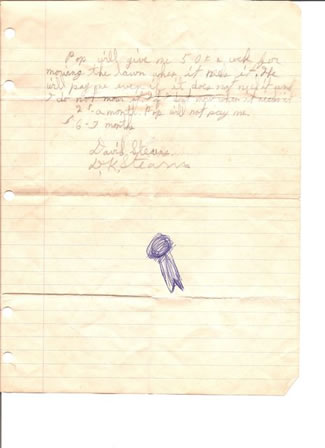 Pop will give me 50¢ a week for
mowing the lawn when it needs it. He
will pay me even if it does not need it and
I do not mow it. If
a month Pop will not pay me.
6-7 months
David Stearns
D.K. Stearns